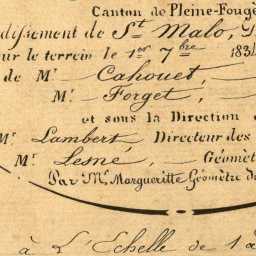 Canton de Pleine-Foug
dissement de St. Malo,
sur le terrein le 1er. 7bre 183
de Mr. Cahouet,
Mr. Forget,
et sous la Direction d
Mr. Lambert, Directeur des
Mr. Lesné, Géomèt
Par Mr. Margueritte Géomètre d
à L'Echelle de 1 à